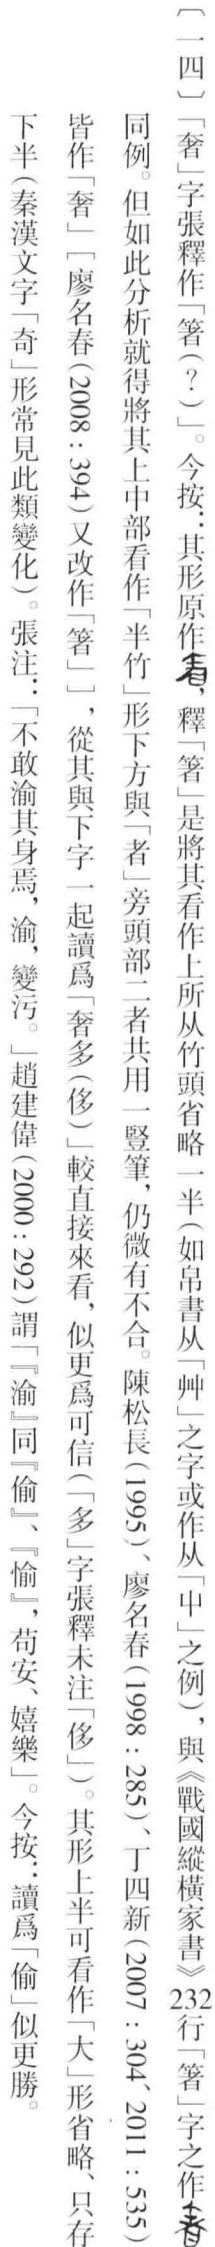 〔一四〕「奢」字張釋作「箸(?)」。今按：其形原作，釋「箸」是將其看作上所从竹頭省略一半(如帛書从「艸」之字或作从「屮」之例)，與《戰國縱橫家書》232行「箸」字之作
同例。但如此分析就得將其上中部看作「半竹」形下方與「者」旁頭部二者共用一豎筆，仍微有不合。陳松長(1995)、廖名春(1998：285)、丁四新(2007：304、2011：535)
皆作「奢」［廖名春(2008：394)又改作「箸」］，從其與下字一起讀爲「奢多(侈)」較直接來看，似更爲可信(「多」字張釋未注「侈」)。其形上半可看作「大」形省略、只存
下半(秦漢文字「奇」形常見此類變化)。張注：「不敢渝其身焉，渝，變污。」趙建偉(2000：292)謂「『渝』同『偷』、『愉』，苟安、嬉樂」。今按：讀爲「偷」似更勝。